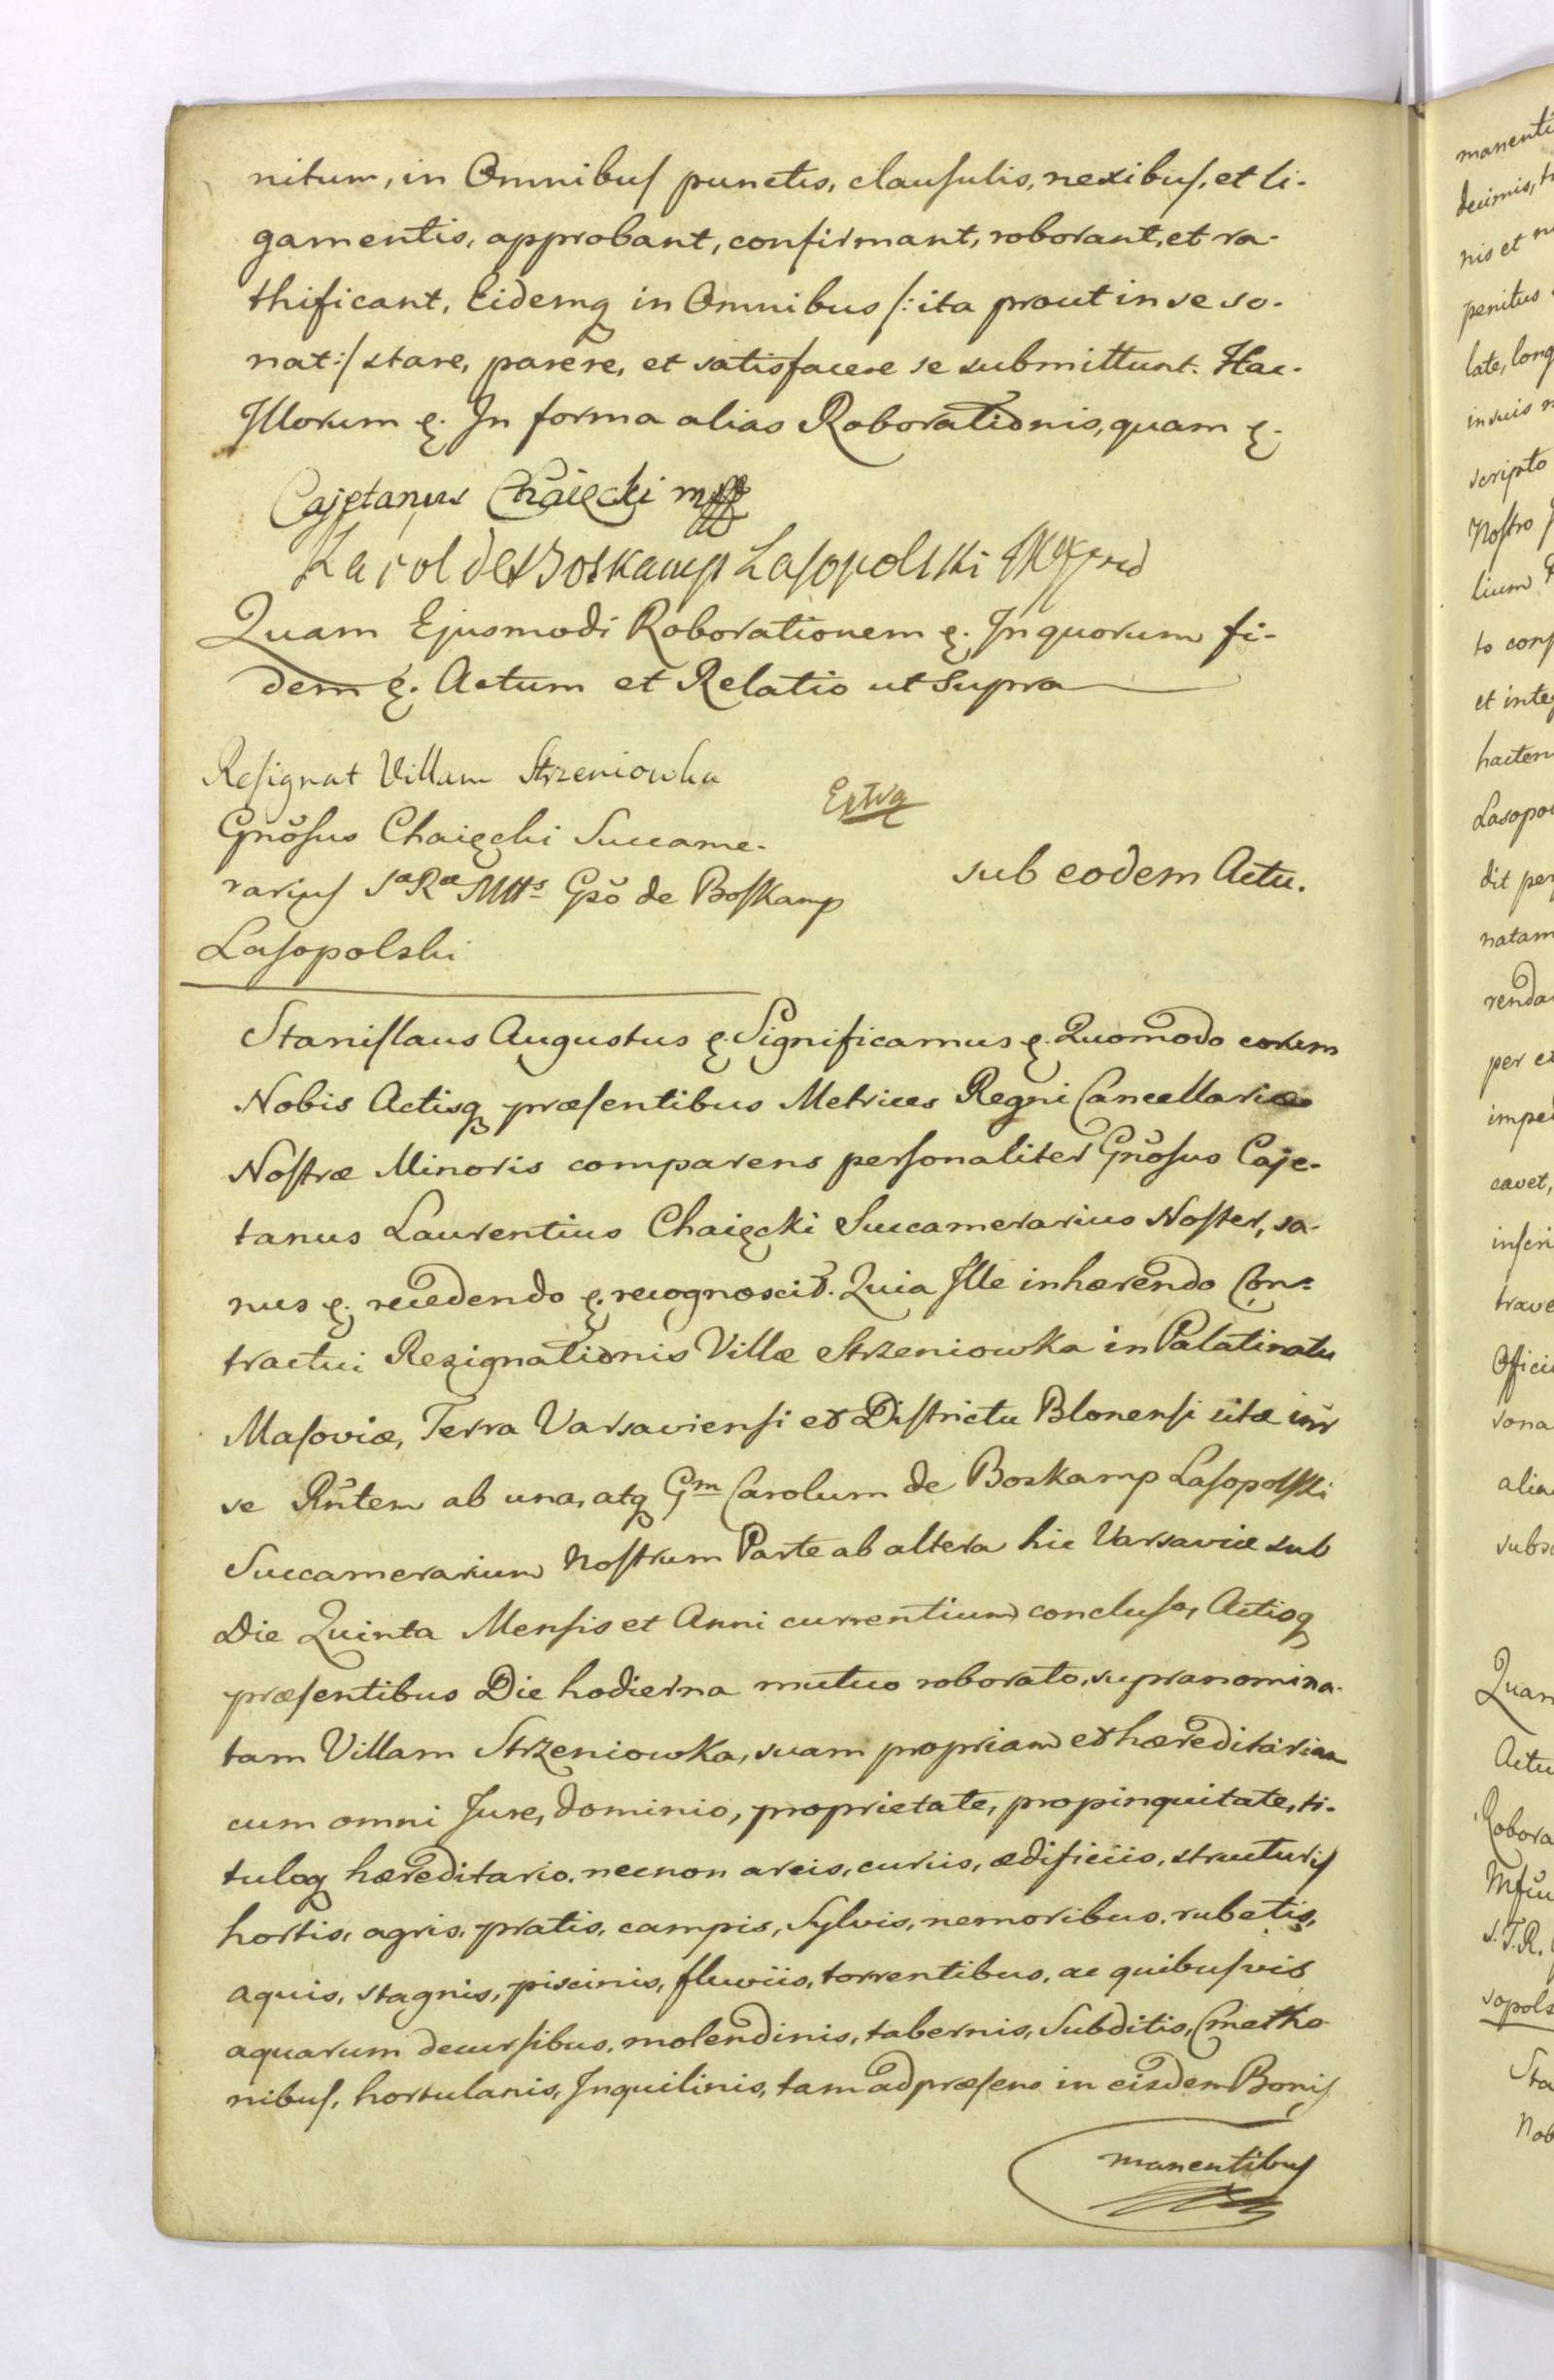 nitum, in Omnibus punctis, clausulis, nexibus, et li-
gamentis, approbant, confirmant, roborant, et ra-
thificant, Eidemq in Omnibus /: ita prout in se so-
nat :/ stare, parere, et satisfacere se submittunt. Har-
Illorum &. In forma alias Roborationis, quam &.
Cajetanus Chaięcki
Karol de Boskamp Lasopolski
Quam Ejusmodi Roborationem &. In quorum fi-
dem &. Actum et Relatio ut Supra
Resignat Villam Strzeniowka
Gnosus Chaięcki Succame-
rarius Sæ Ræ Mtts Gso de Boskamp
Lasopolski
Extra
sub eodem Actu.
Stanislaus Augustus &. Significamus &. Quomodo coram
Nobis Actisq præsentibus Metrices Regni Cancellariæ
Nostræ Minoris comparens personaliter Gnosus Caje-
tanus Laurentius Chaięcki Succamerarius Noster, sa-
nus &. recedendo &. recognoscit. Quia Ille inhærendo Con-
tractui Rezignationis Villæ Strzeniowka in Palatinatu
Masoviæ, Terra Varsaviensi et Districtu Blonensi sitæ inr
se Rntem ab una, atq Gm Carolum de Boskamp Lasopolski
Succamerarium Nostrum Parte ab altera hic Varsaviæ sub
Die Quinta Mensis et Anni currentium concluso, Actisq
præsentibus Die hodierna mutuo roborato, supranomina-
tam Villam Strzeniowka, suam propriam et hæreditariam
cum omni Jure, dominio, proprietate, propinquitate, ti-
tuloq hæreditario, necnon areis, curiis, ædificiis, structuris
hortis, agris, pratis, campis, Sylvis, nemoribus, rubetis,
aquis, stagnis, piscinis, fluviis, torrentibus, ac quibusvis
aquarum decursibus, molendinis, tabernis, Subditis, Cmetho-
nibus, hortulanis, Inquilinis, tam ad præsens in eisdem Bonis
manentibus